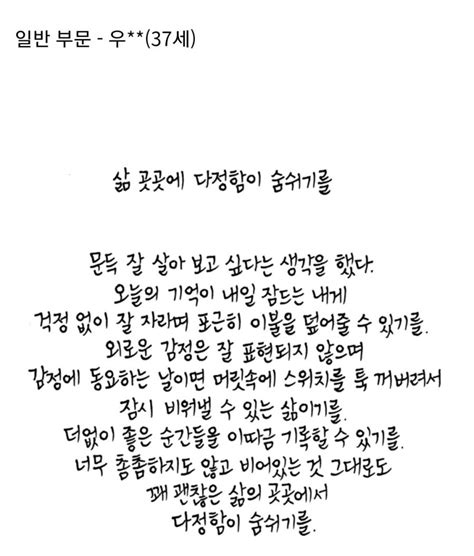 일반 부문 - 우**(37세)
삶 곳곳에 다정함이 숨쉬기를
문득 잘 살아 보고 싶다는 생각을 했다.
오늘의 기억이 내일 잠드는 내게
걱정 없이 잘 자라며 포근히 이불을 덮어줄 수 있기를.
외로운 감정은 잘 표현되지 않으며
감정에 동요하는 날이면 머릿속에 스위치를 툭 꺼버려서
잠시 비워낼 수 있는 삶이기를.
더없이 좋은 순간들을 이따금 기록할 수 있기를.
너무 촘촘하지도 않고 비어있는 것 그대로도
꽤 괜찮은 삶의 곳곳에서
다정함이 숨쉬기를.